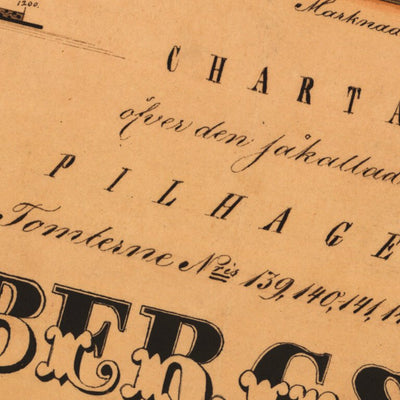 1200.
Marknad
CHARTA
öfver den såkallad
PILHAGE
Tomterne N:is 139, 140, 141, 14
BERGS